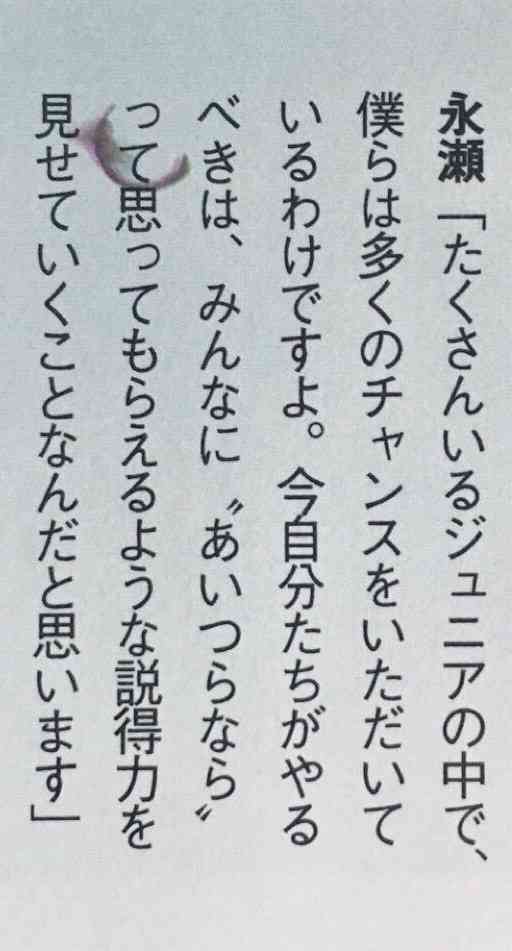 永瀬「たくさんいるジュニアの中で、
僕らは多くのチャンスをいただいて
いるわけですよ。今自分たちがやる
べきは、みんなに〝あいつらなら〟
って思ってもらえるような説得力を
見せていくことなんだと思います」